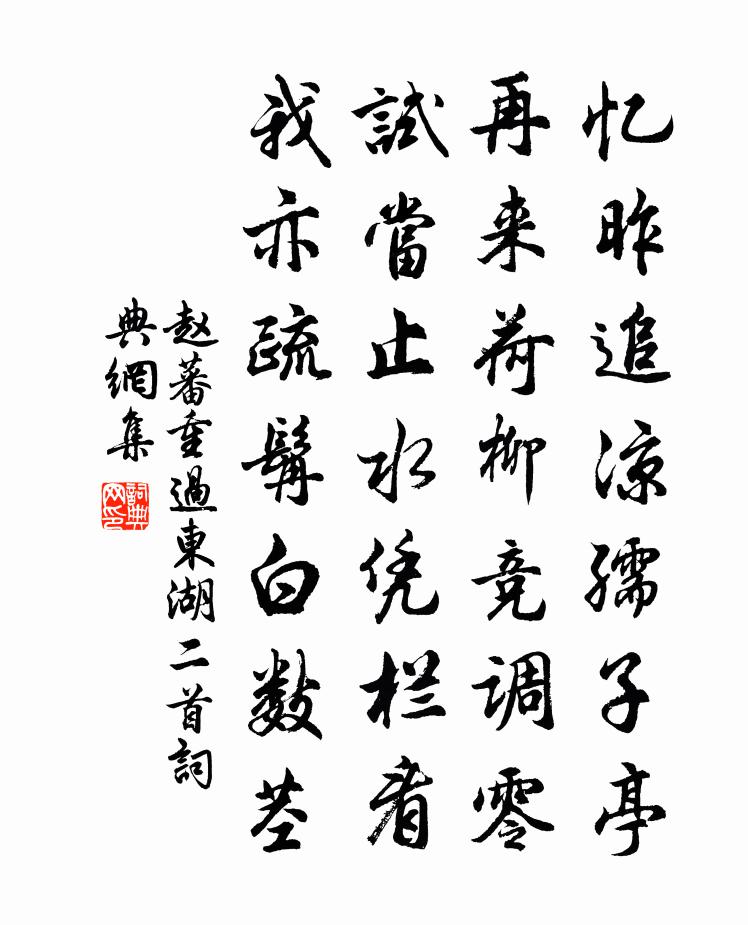 忆昨追凉孺子亭
再来荷柳竞调零
試當止水凭栏看
我亦疏髯白数茎
赵蕃重過東湖二首詞
典網集
詞典网印